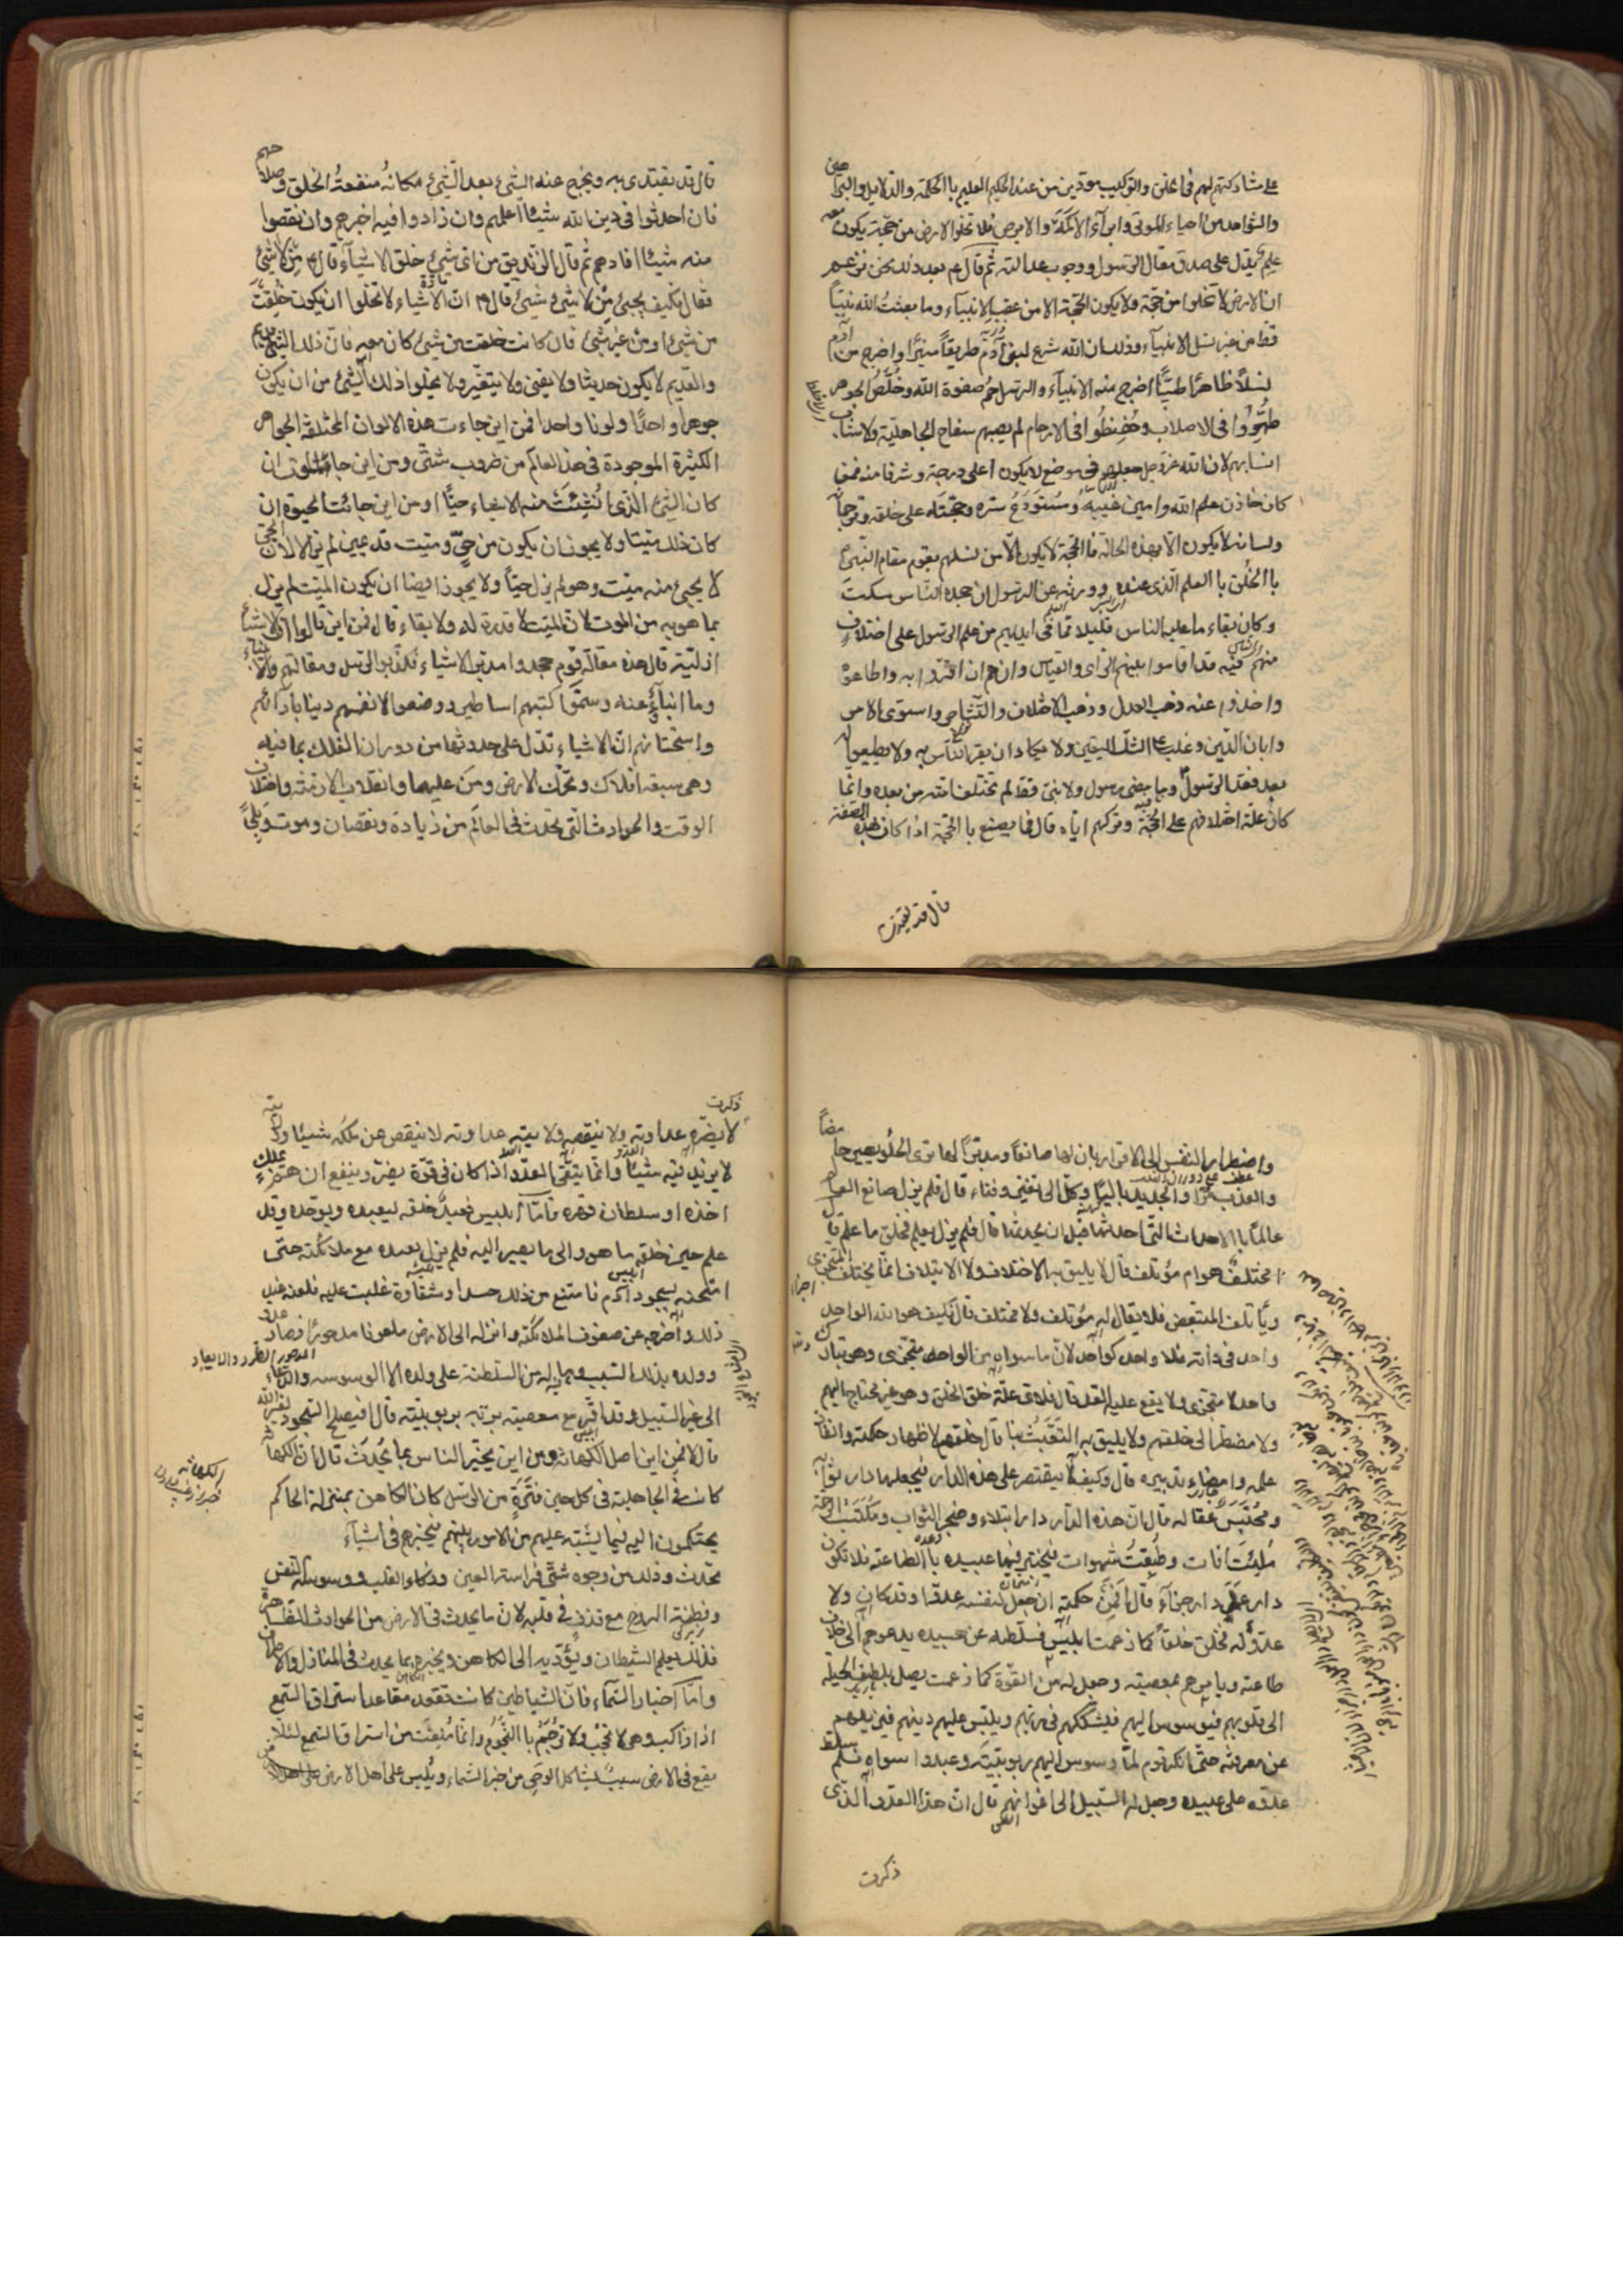 على مشاركتهم لهم فى الخلق والتركيب مؤدين من عند الحكيم العليم باالحكمة والدلايل والبراهين
والشواهد من احياء الموتى وابراء الاكمه والابرص فلا تخلوا الارض من حجة يكون معه
علم يدل على صدق مقال الرسول ووجوب عدالته ثم قال ع بعد ذلك نحن نزعم
ان الارض لا تخلوا من حجة ولا يكون الحجة الا من عقب الانبياء وما بعث الله نبيا
قط من غير نسل الانبياء وذلك ان الله شرع لبنى آدم طريقاً منيرًا واخرج من آدم
نسلاً طاهرًا طيبًا اخرج منه الانبياء والرسل هم صفوة الله وخُلَّصُ الجوهر
طُهِّرُوا فى الاصلاب وحُفِظُوا فى الارحام لم يصبهم سفاح الجاهلية ولا شاب
انسابهم لان الله عزوجل جعلهم فى موضع لا يكون اعلى درجة وشرفا منه فمن
كان خازن علم الله وامين غيبه ومُستَودَعُ سرّه وحجّته على خلقه وترجمانه
ولسانه لا يكون الا بهذه الحالة فاالحجة لا يكون الا من نسلهم يقوم مقام النبى
باالخلق باالعلم الذى عنده وورثه عن الرسول ان جحده الناس سكت
وكان بقاء ما عليه الناس قليلا مما فى ايديهم من علم الرسول على اختلاف
منهم فيه قد اقاموا بينهم الراى والقياس وانهم ان اقروا به واطاعوه
واخذوا عنه ظهر العدل وذهب الاختلاف والتشاجر واستوى الامر
وابان الدين وغلب على الشك اليقين ولا يكاد ان يقر الناس به ولا يطيعوا له
بعد فقد الرسول وما مضى رسول ولا نبى قط لم تختلف امته من بعده وانما
كان علة اختلافهم على الحجة وتركهم اياه قال فما يصنع باالحجة اذا كان بهذه الصفة
قال قد يقتدى
قال قد يقتدى به ويخرج عنه الشئ بعد الشئ مكانه منفعة الخلق وصلاحهم
فان احدثوا فى دين الله شيئا اعلمهم وان زادوا فيه اخبرهم وان نقصوا
منه شيئا افادهم ثم قال الزنديق من اى شيئ خلق الاشياء قال ع من لا شئ
فقال فكيف يجيئ من لا شيئ شيئ قال ع انّ الاشياء لا تخلوا ان يكون خلقت
من شيئ او من غير شيئ فان كانت خلقت من شيئ كان معه فان ذلك الشئ قديم
والقديم لا يكون حديثا ولا يفنى ولا يتغير ولا يخلوا ذلك الشئ من ان يكون
جوهرا واحدًا ولونا واحدا فمن اين جاءت هذه الالوان المختلفة الجواهر
الكثيرة الموجودة فى هذا العالم من ضروب شتى ومن اين جاء الموت ان
كان الشئ الذى اُنشِئَت منه الاشياء حيًّا او من اين جائت الحيوة ان
كان ذلك ميتا ولا يجوز ان يكون من حىّ وميت قديمين لم يزالا لان الحى
لا يجيئ منه ميت وهو لم يزل حيًا ولا يجوز ايضا ان يكون الميت لم يزل
بما هو به من الموت لان الميت لا قدرة له ولا بقاء قال فمن اين قالوا ان الاشياء
ازلية قال هذه مقالة قوم جحدوا مدبر الاشياء فكذبوا الرسل ومقالتهم والانبياء
وما انباؤ عنه وسمّوا كتبهم اساطير ووضعوا لانفسهم دينا بآرائهم
واستحسانهم ان الاشياء تدل على حدوثها من دوران الفلك بما فيه
وهى سبعه افلاك وتحرك الارض ومن عليها وانقلاب الازمنة واختلاف
الوقت والحوادث التى تحدث فى العالم من زيادة ونقصان وموت وبلى
واضطرار النفس الى الاقرار بان لها صانعًا ومدبرًا اما ترى الحلو يصير حامضاً
والعذب مرًا والجديد باليًا وكل الى تغير وفناء قال فلم يزل صانع العالم
عالمًا باالاحداث التى احدثها قبل ان يحدثها قال فلم يزل يعلم فخلق ما علم قال
امختلف هو ام مؤتلف قال لا يليق به الاختلاف ولا الايتلاف انما يختلف المتجزى
ويأتلف المتبعض فلا يقال له مؤتلف ولا مختلف قال فكيف هو الله الواحد
واحد فى ذاته فلا واحد كواحد لان ما سواه من الواحد متجزى وهو تبارك
واحد لا متجزى ولا يقع عليه العد قال فلاى علة خلق الخلق وهو غير محتاج اليهم
ولا مضطر الى خلقهم ولا يليق به التعبث بنا قال خلقهم لاظهار حكمته وانفاذ
علمه وامضاء تدبيره قال وكيف لا يقتصر على هذه الدار فيجعلها دار ثوابه
ومحتبس عقابه قال ان هذه الدار دار ابتلاء ومتجر الثواب ومكتسب الرحمة
مُلِئَت آفات وطبقت شهوات ليختبر فيها عبيده باالطاعة فلا تكون
دار عمل دار جزاء قال افمن حكمته ان جعل لنفسه عدوّا وقد كان ولا
عدوّ له فخلق خلقا كما زعمت ابليس فسلطه عن عبيده يدعوهم الى خلاف
طاعته ويامرهم بمعصيته وجعل له من القوة كما زعمت يصل بلطيف الحيلة
الى قلوبهم فيوسوس اليهم فيشككهم فى ربهم ويلبس عليهم دينهم فيزيلهم
عن معرفته حتى انكر قوم لما وسوس اليهم ربوبيته وعبدوا سواه فلم سلط
عدوّه على عبيده وجعل له السبيل الى اغوائهم قال ان هذا العدو الذى
ذكرت
ذكرت
لا يضرّه عداوته ولا ينقصه ولايته عداوته لا ينقص من ملكه شيئا وولايته
لا يزيد فيه شيئا وانما يتقى العدو اذا كان فى قوة يضر وينفع ان همّ بملك
اخذه او سلطان قهره فامّا ابليس فعبد خلقه ليعبده ويوحده وقد
علم حين خلقه ما هو والى ما يصير اليه فلم يزل يعبده مع ملائكته حتى
امتحنه بسجود آدم فامتنع من ذلك حسدا وشقاوة غلبت عليه فلعنه عند
ذلك واخرجه عن صفوف الملائكة وانزله الى الارض ملعونا مدحورًا فصار عدو
وولده بذلك السبب وماله من السلطنة على ولده الا الوسوسه والدعاء
الى غير السبيل وقد اقرّ مع معصيته بربه بربوبيته قال افيصلح السجود لغير الله
قال لا فمن اين اصل الكهانة ومن اين يخبر الناس بما يُحدث قال ان الكهانة
كانت فى الجاهلية فى كل حين فترة من الرسل كان الكاهن بمنزلة الحاكم
يحتكمون اليه فيما يشتبه عليهم من الامور بينهم فيخبرهم فى اشياء
تحدث وذلك من وجوه شتى فراسة العين وذكاء القلب ووسوسة النفس
وفطنة الروح مع قذف فى قلبه لان ما يحدث فى الارض من الحوادث الظاهرة
فذلك يعلم الشيطان ويؤديه الى الكاهن ويخبره بما يحدث فى المنازل والاطراف
وامّا اخبار السماء فان الشياطين كانت تقعد مقاعد استراق السمع
اذ ذاك وهى لا تحجب ولا تُرجم باالنجوم وانما مُنِعَت من استراق السمع لئلا
يقع فى الارض سبب يشاكل الوحى من خبر السماء ويلبس على اهل الارض